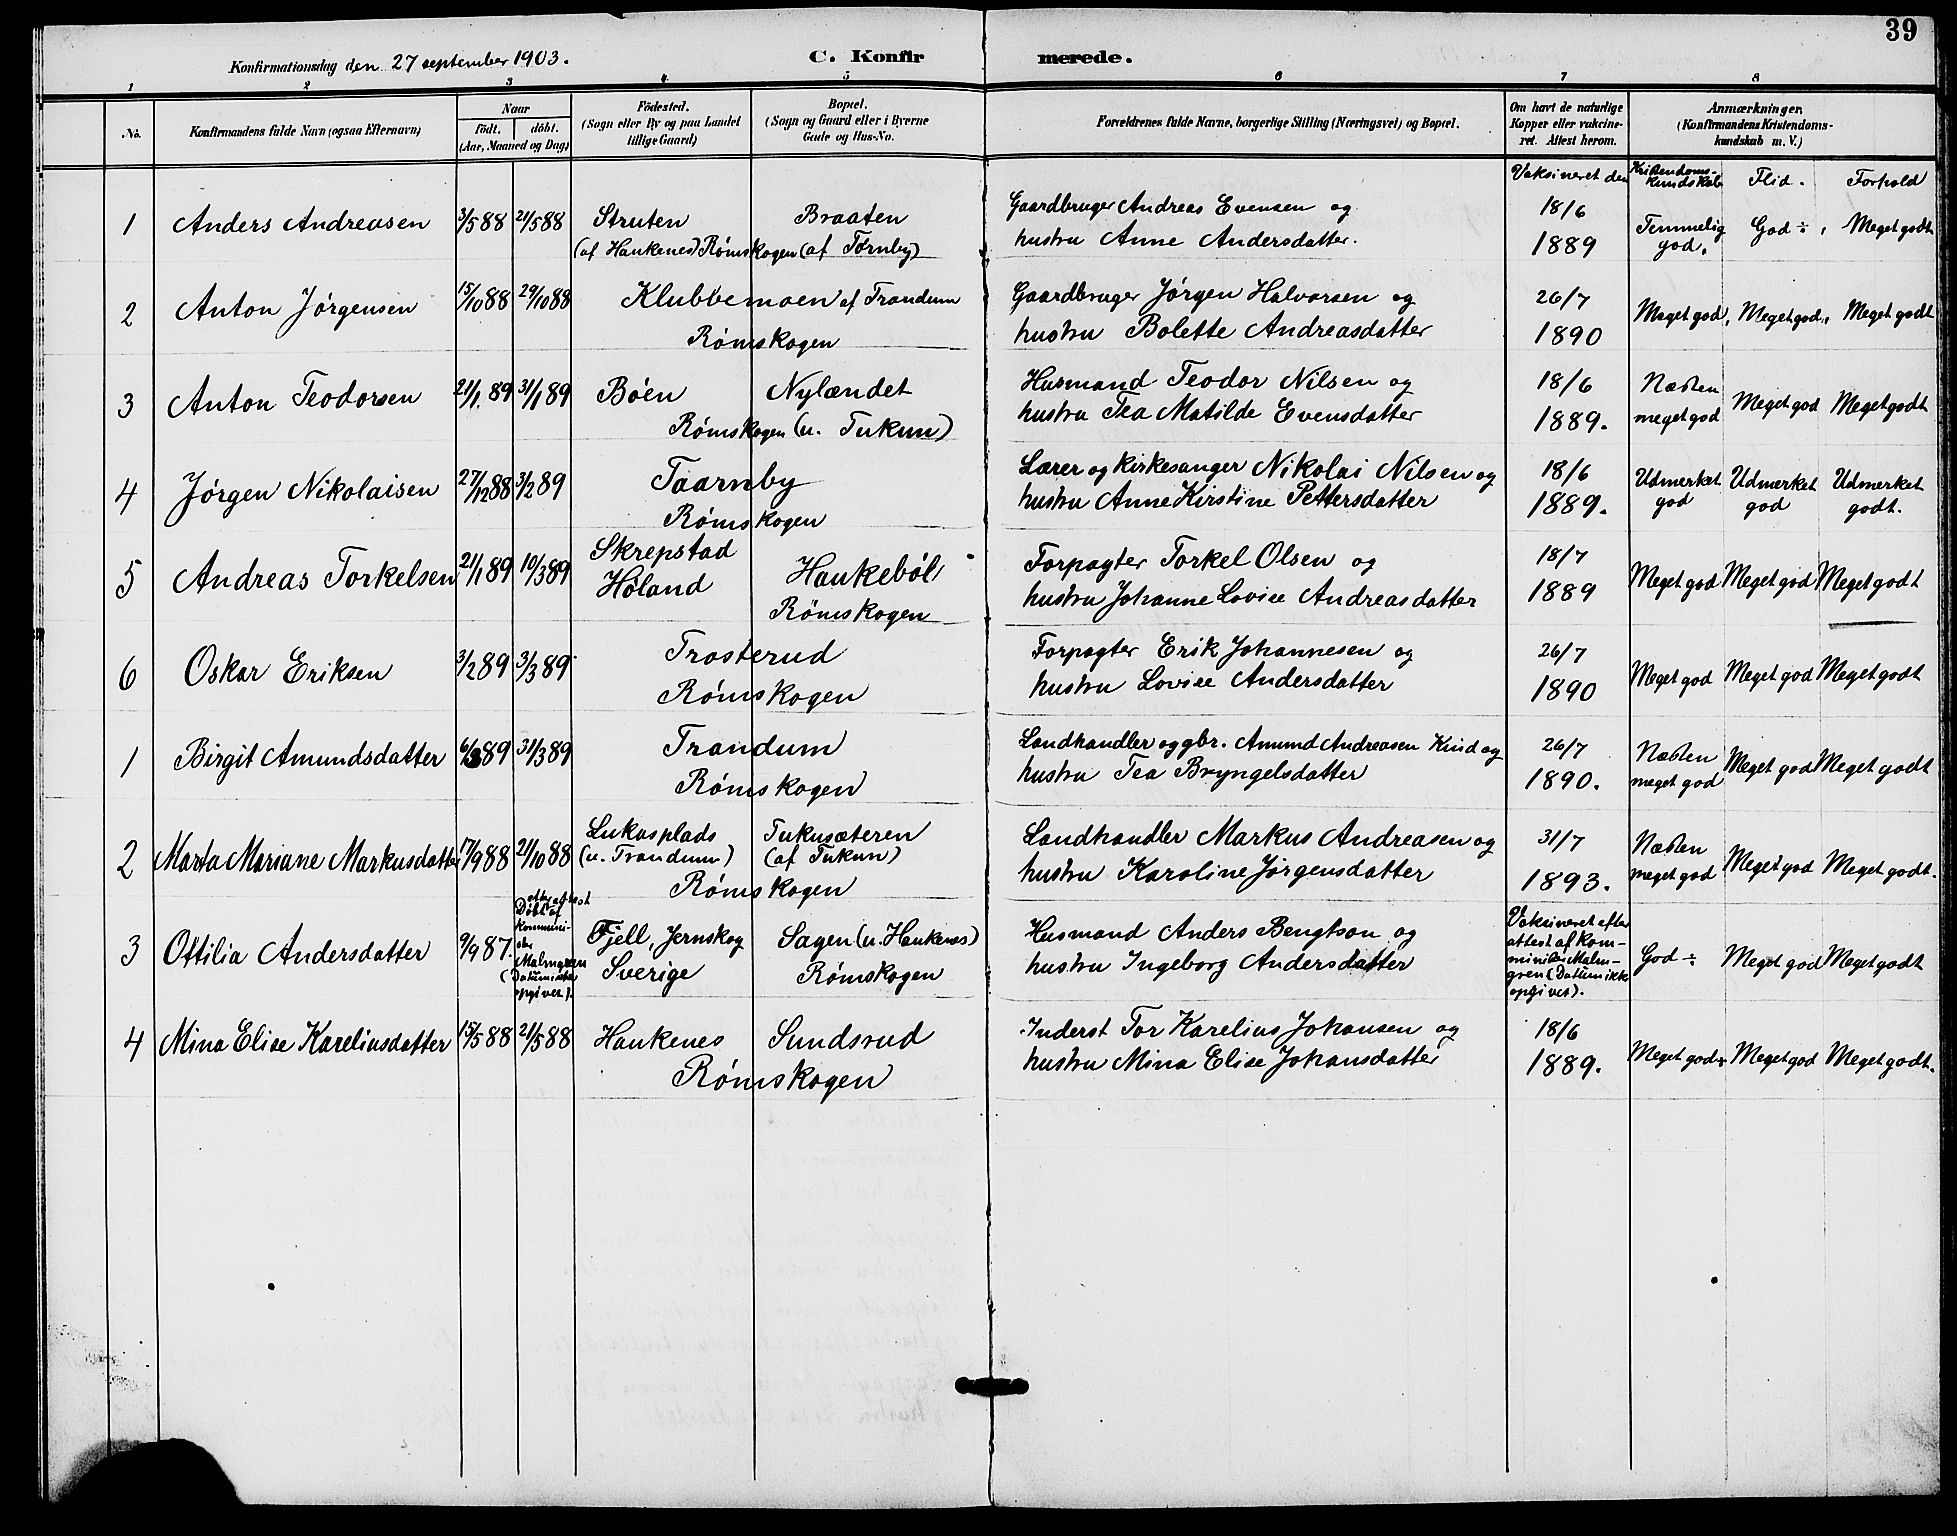 39
Konfirmationsdag den 27 september 1903.
C. Konfirmerede.
1 2 3 4 5 6 7 8
No.
Konfirmandens fulde Navn (ogsaa Efternavn)
Naar
födt. döbt.
(Aar, Maaned og Dag)
Födested.
(Sogn eller By og paa Landet
tillige Gaard)
Bopæl.
(Sogn og Gaard eller i Byerne
Gade og Hus-No.
Forældrenes fulde Navne, borgerlige Stilling (Næringsvei) og Bopæl.
Om havt de naturlige
Kopper eller vakcine-
ret. Attest herom.
Anmærkninger,
(Konfirmandens Kristendoms-
kundskab m. V.)
Vaksineret den
Kristendoms-
kundskab
Flid.
Forhold
1 Anders Andreasen 3/5 88 21/5 88
Struten
(af Haukenes) Rømskogen
Braaten
(af Tørnby)
Gaardbruger Andreas Evensen og
hustru Anne Andersdatter.
18/6
1889
Temmelig
god.
God ÷
Meget godt
2 Anton Jørgensen 15/10 88 29/10 88
Klubbemoen af Trandum
Rømskogen
Gaardbruger Jørgen Halvorsen og
hustru Bolette Andreasdatter
26/7
1890
Meget god, Meget god, Meget godt
3 Anton Teodorsen 21/1 89 31/1 89
Bøen Nylændet
Rømskogen (u. Tukun)
Husmand Teodor Nilsen og
hustru Tea Matilde Evensdatter
18/6
1889.
Næsten
meget god
Meget god Meget godt
4 Jørgen Nikolaisen 27/12 88 3/2 89
Taarnby
Rømskogen
Lærer og kirkesanger Nikolai Nilsen og
hustru Anne Kirstine Pettersdatter
18/6
1889.
Udmerket
god
Udmerket
god
Udmerket
godt.
5 Andreas Torkelsen 21/1 89 10/3 89
Skrepstad
Høland
Haukebøl
Rømskogen
Forpagter Torkel Olsen og
hustru Johanne Lovise Andreasdatter
18/7
1889
Meget god Meget god Meget godt
6 Oskar Eriksen 3/2 89 3/3 89
Trosterud
Rømskogen
Forpagter Erik Johannesen og
hustru Lovise Andersdatter
26/7
1890
Meget god Meget god Meget godt
1 Birgit Amundsdatter 6/3 89 31/3 89
Trandum
Rømskogen
Landhandler og gbr. Amund Andreasen Kind og
hustru Tea Bryngelsdatter
26/7
1890.
Næsten
meget god
Meget god Meget godt
2 Marta Mariane Markusdatter 17/9 88 21/10 88
Lukasplads
(u. Trandum)
Tukusæteren
(af Tukun)
Rømskogen
Landhandler Markus Andreasen og
hustru Karoline Jørgensdatter
31/7
1893.
Næsten
meget god
Meget god Meget godt.
3 Ottilia Andersdatter 9/9 87.
Døbt efter attest
af
kommini-
ster
Malmgren
(Datum ikke
opgivet).
Fjell, Jernskog
Sverige
Sagen (u. Haukenes)
Rømskogen
Husmand Anders Bengtson og
hustru Ingeborg Andersdatter
Vaksineret efter
attest af kom-
minister Malm-
gren (Datum ikke
opgivet).
God ÷
Meget god Meget godt
4 Mina Elise Kareliusdatter 15/5 88 21/5 88
Haukenes Sundsrud
Rømskogen
Inderst Tor Karelius Johansen og
hustru Mina Elise Johansdatter
18/6
1889.
Meget god ÷ Meget god Meget godt.